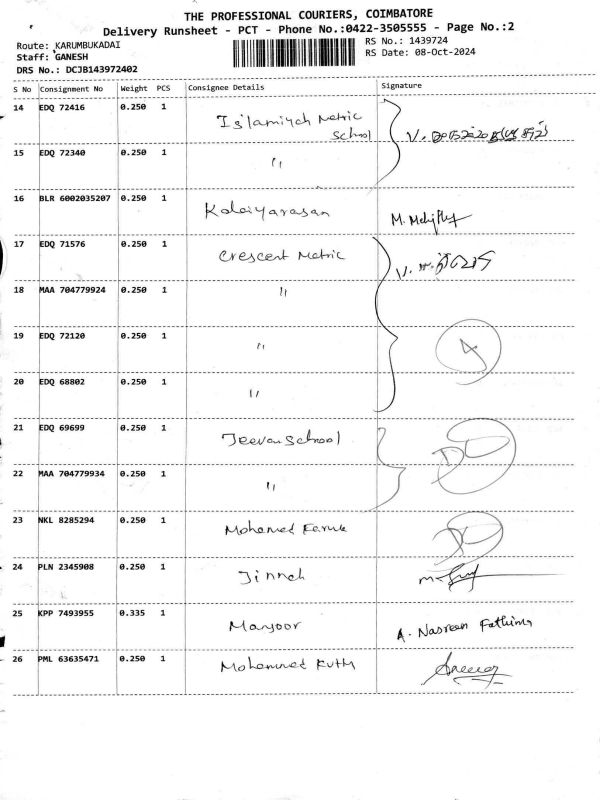 THE PROFESSIONAL COURIERS, COIMBATORE
Delivery Runsheet - PCT - Phone No.:0422-3505555 - Page No.:2
Route: KARUMBUKADAI
RS No.: 1439724
Staff: GANESH
RS Date: 08-Oct-2024
DRS No.: DCJB143972402
S No Consignment No Weight PCS Consignee Details Signature
14 EDQ 72416 0.250 1 Islamiyah Metric
School
15 EDQ 72340 0.250 1 "
16 BLR 6002035207 0.250 1 Kalaiyarasan
17 EDQ 71576 0.250 1 Crescent Metric
18 MAA 704779924 0.250 1 "
19 EDQ 72120 0.250 1 " 4
20 EDQ 68802 0.250 1 "
21 EDQ 69699 0.250 1 Jeevan School
22 MAA 704779934 0.250 1 "
23 NKL 8285294 0.250 1 Mohamed Faruk
24 PLN 2345908 0.250 1 Jinnah
25 KPP 7493955 0.335 1 Mansoor A. Nasreen Fathima
26 PML 63635471 0.250 1 Mohammed